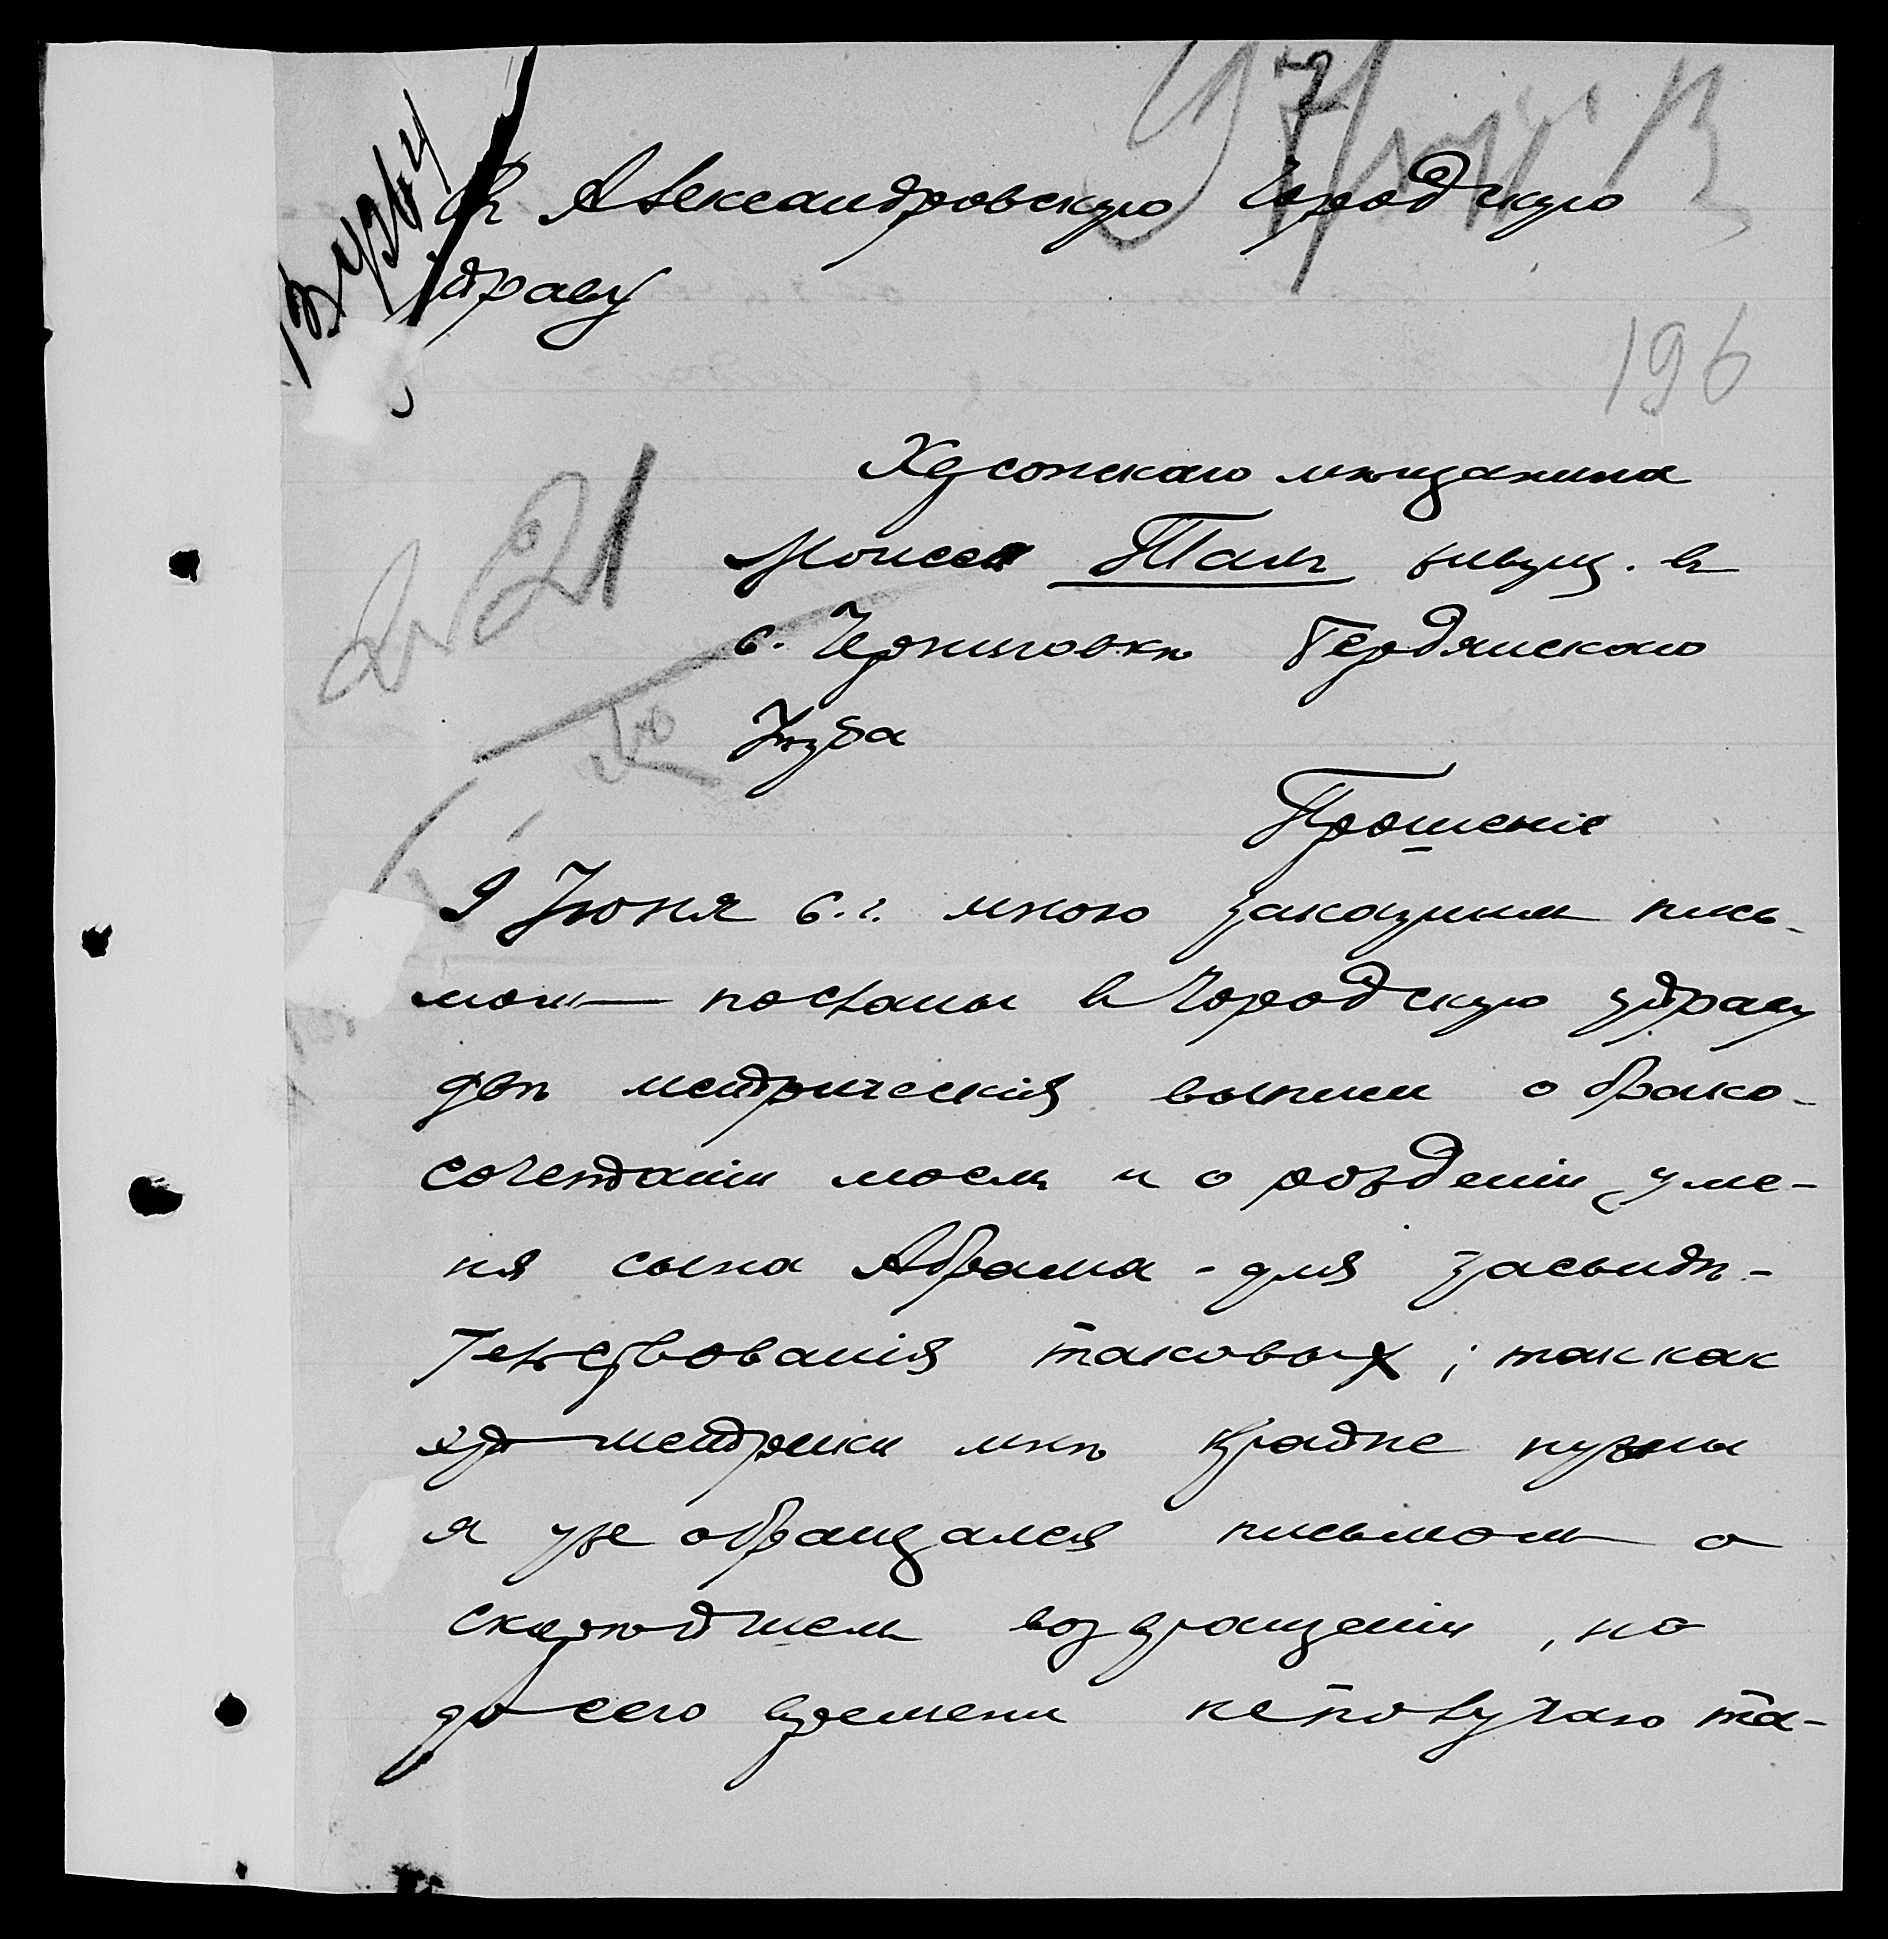 196
Въ Александровскую Городскую
Управу
Херсонскаго мѣщанина
Моисея Таль живущ. въ
с. Черниговкѣ Бердянскаго
Уѣзда
Прошеніе
9 Іюня с.г. мною заказным пись-
мом посланы в Городскую управу
двѣ метрическія выписи о брако-
сочетаніи моем и о рожденіи у ме-
ня сына Абрама - для засвидѣ-
тельствованія таковых; так как
метрики мнѣ крайне нужны
я уже обращался письмом о
скорѣйшем возвращеніи, но
до сего времени не получаю та-